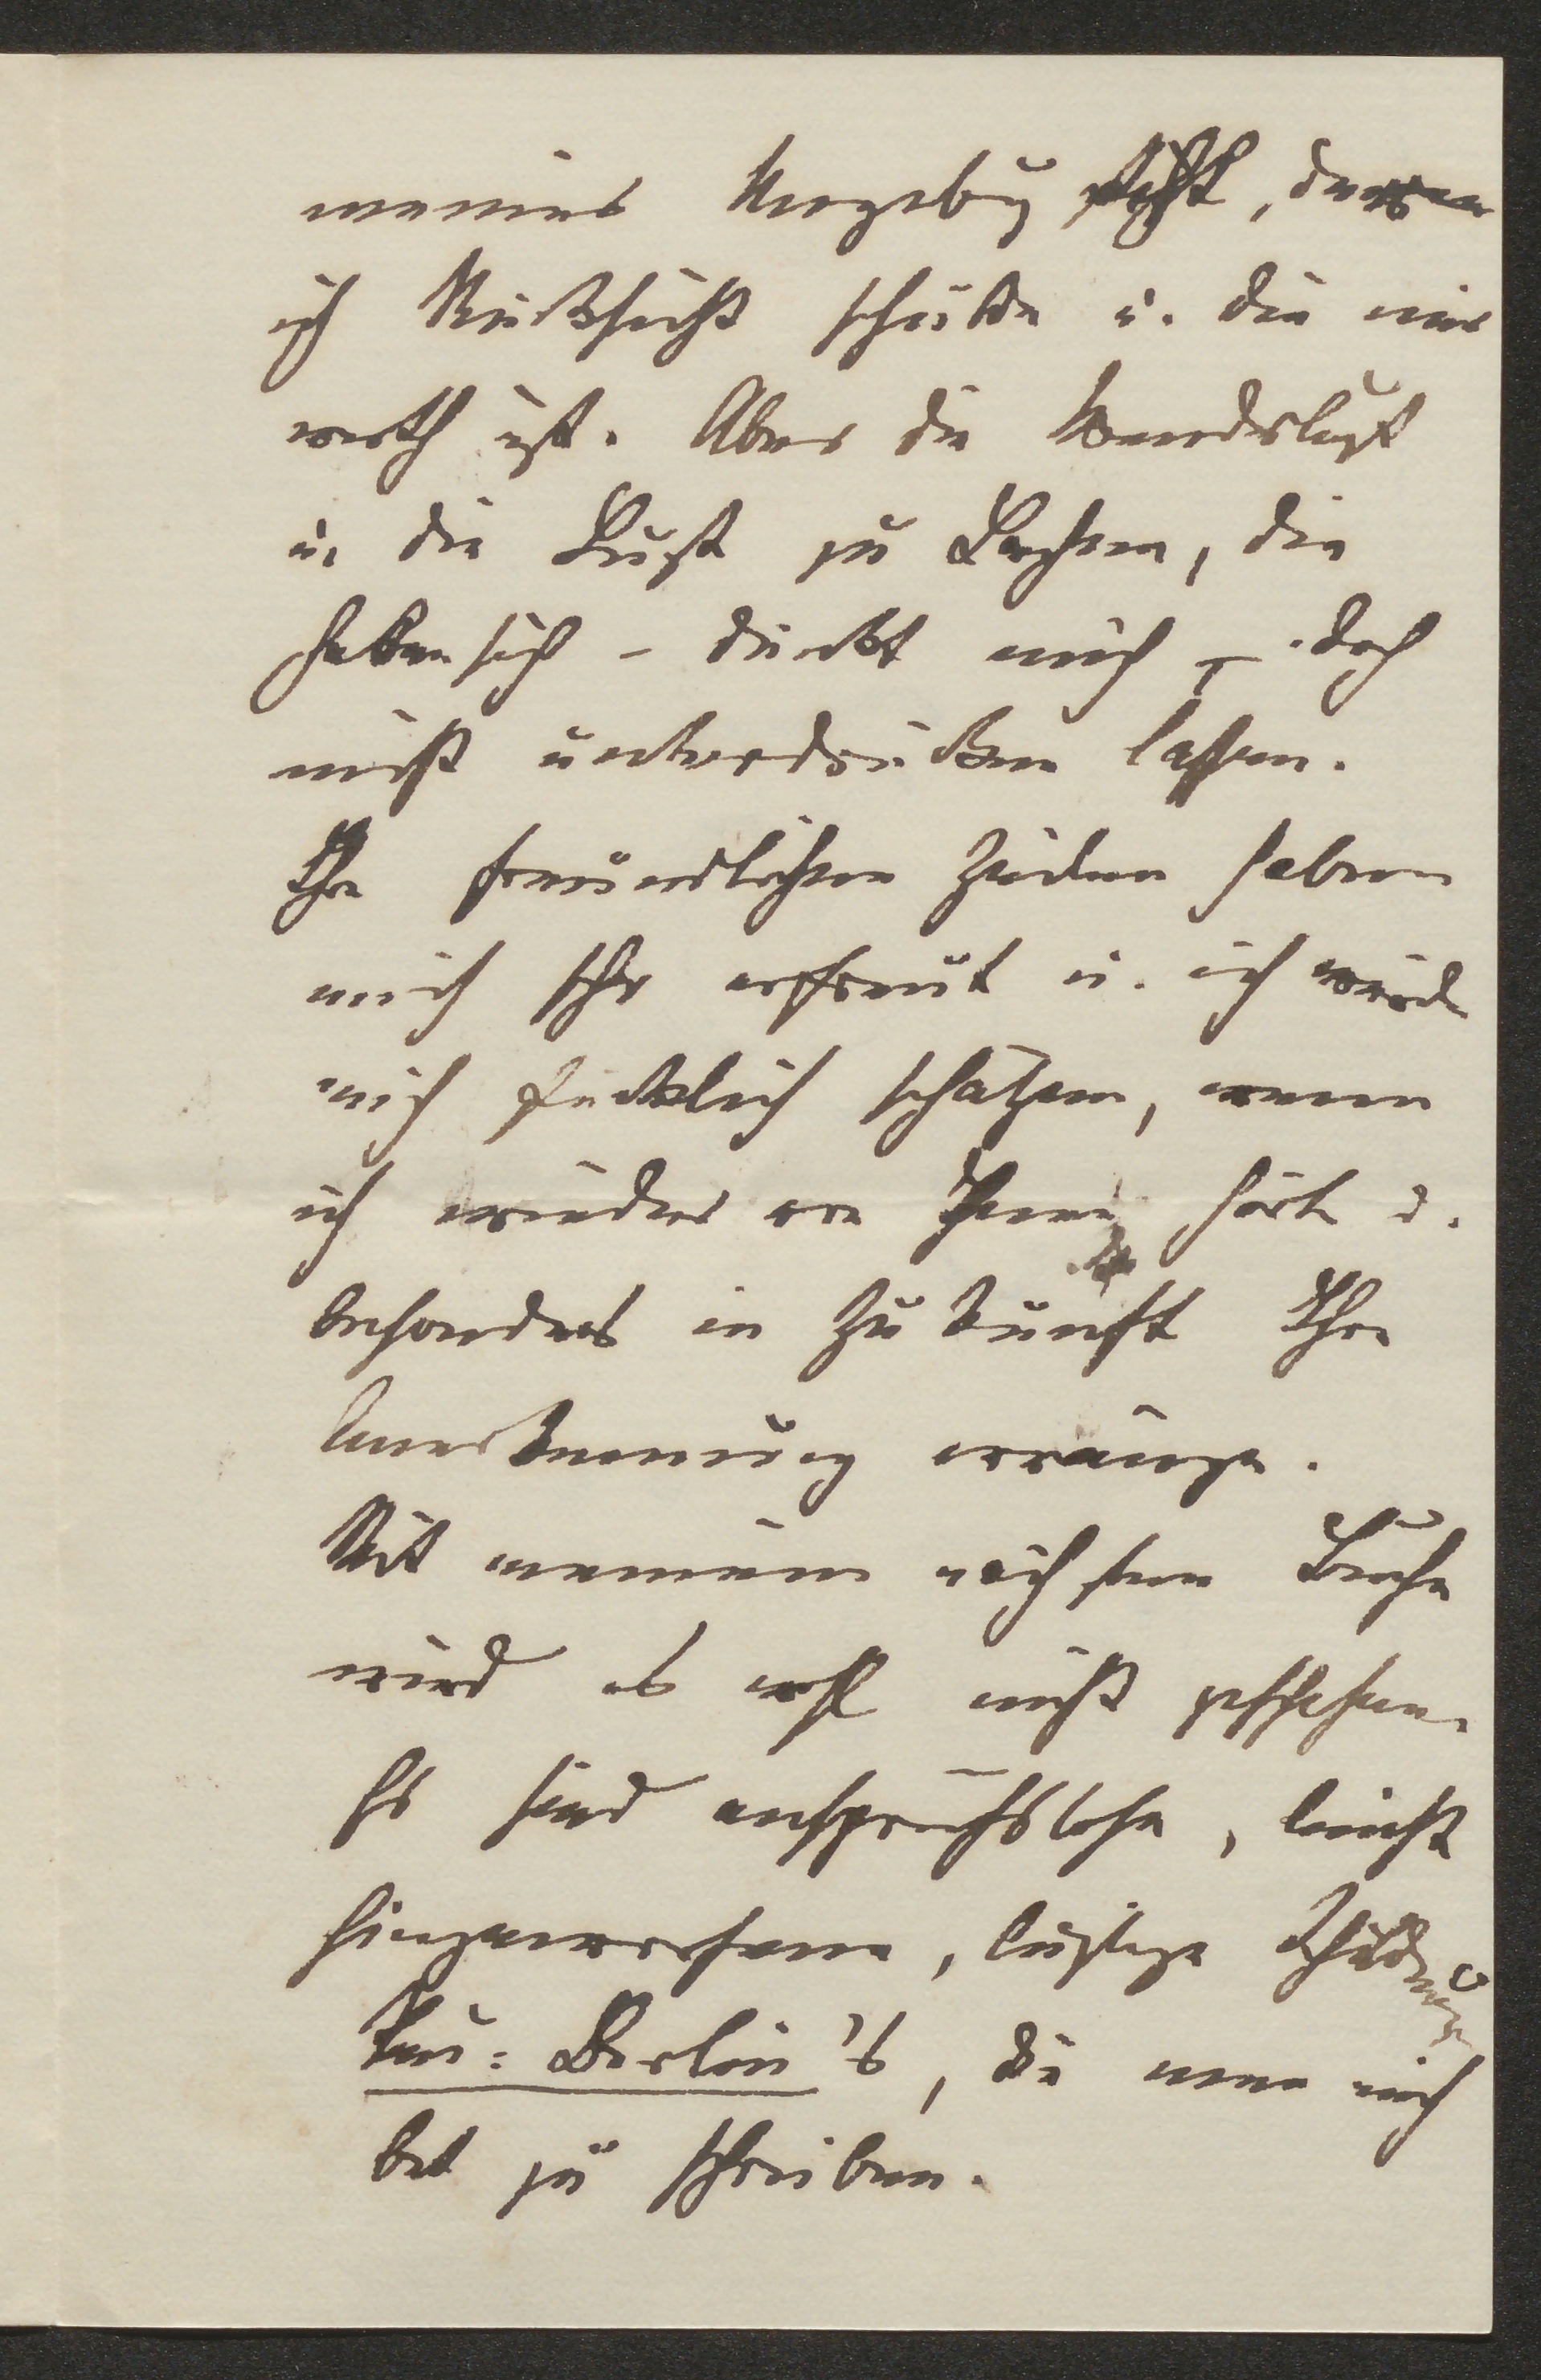 meiner Umgebg , deren
ich Rücksicht schulde u. die mir
werth ist. Aber die Wanderlust
u. die Lust zu Lachen, die
haben sich – dünkt mich – doch
nicht unterdrücken lassen.
Ihre freundlichen Zeilen haben
mich sehr erfreut u. ich würde
mich glücklich schätzen, wenn
ich wieder von Ihnen hörte u.
besonders in Zukunft Ihre
Anerkennung erränge.
Mit meinem nächsten Buche
wird es wohl nicht geschehen.
Es sind anspruchslose, leicht
hingeworfene, lustige Schilderungen
Berlin's, die man mich
bat zu schreiben.